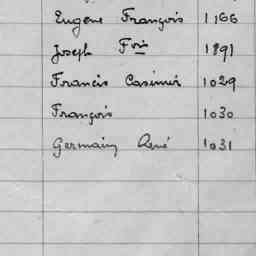 Eugène François 1166
Joseph Fois 1891
Francis Casimir 1029
François 1030
Germain René 1031